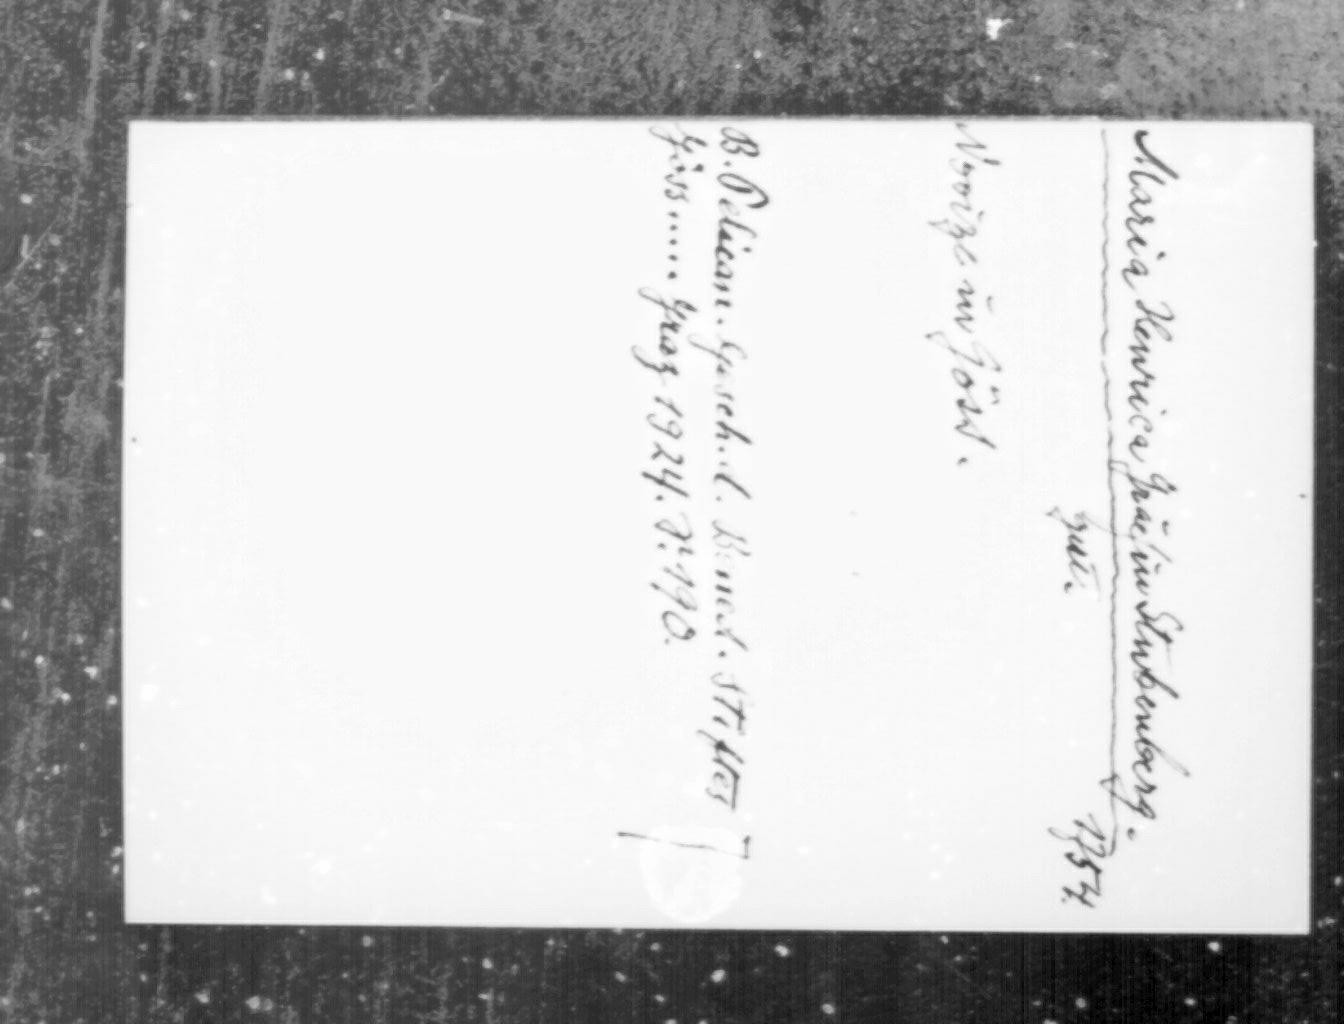 Maria Henrica Gräfin Stubenberg.
gest. 1754
Novize in Göss.
B. Pelican. Gesch. d. Bened. Stiftes
Göss..... Graz 1924. S. 190.